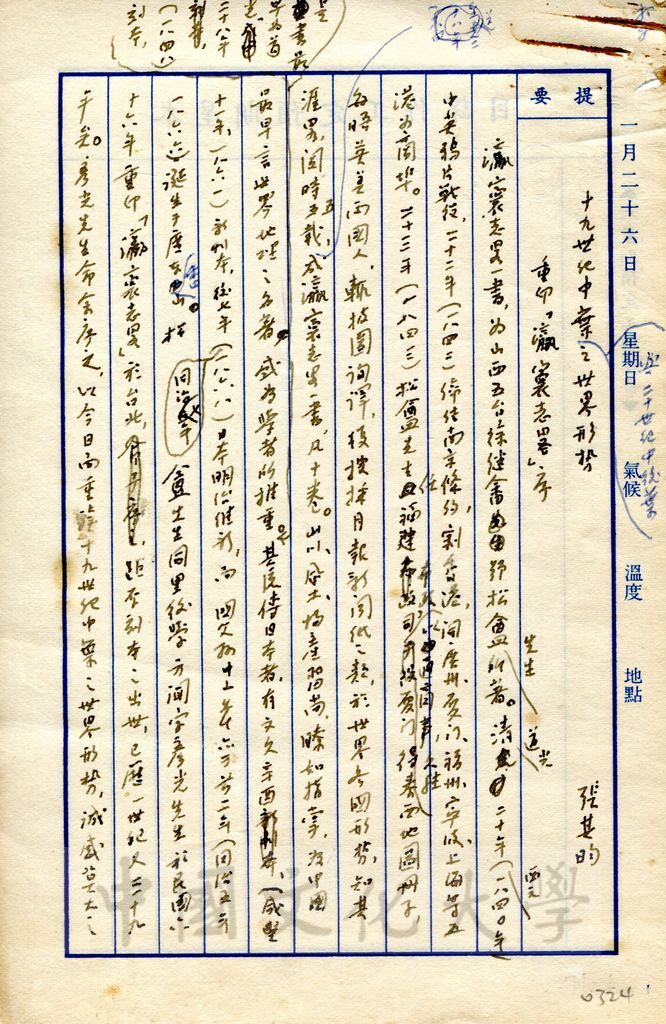 提要
一月二十六日 星期日 氣候 溫度 地點
與二十世紀中後葉
十九世紀中葉之世界形勢 張其昀
重印「瀛寰志略」序
瀛寰志略一書，為山西五台徐繼畬號松龕先生所著。清道光二十年（一八四〇年
中英鴉片戰役，二十二年（一八四二）締結南京條約，割香港，開廣州、廈門、福州、寧波、上海等五
港為商埠。二十三年（一八四三）松龕先生任福建布政司 久駐廈門，得泰西地圖冊子，
每晤英美兩國人，輒按圖詢譯，複搜採月報新聞紙之類，於世界各國形勢，知其
涯略，閱時五載，成瀛寰志略一書，凡十卷。山川、風土、物產習尚，瞭如指掌，為中國
最早言世界地理之名著，咸為學者所推重。其後傳日本者，有文久辛酉（咸豐
十一年，一八六一）新刊本，後七年（一八六八）日本明治維新，而 國父孫中山先生
一八六六）誕生於 同治五年 龕先生同里後學方聞字彥光先生於民國六
十六年重印「瀛寰志略」於台北，距本刻本之出世，已歷一世紀又二十九
年矣。彥光先生命余序之，以今日而重論十九世紀中葉之世界形勢，誠感莫大之
是書最
早為道
光
二十八年
（一八四八
刻本，
中國文化大學
0324